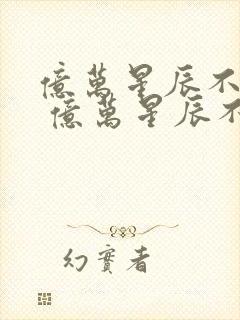 億萬星辰不
億萬星辰不
幻實者